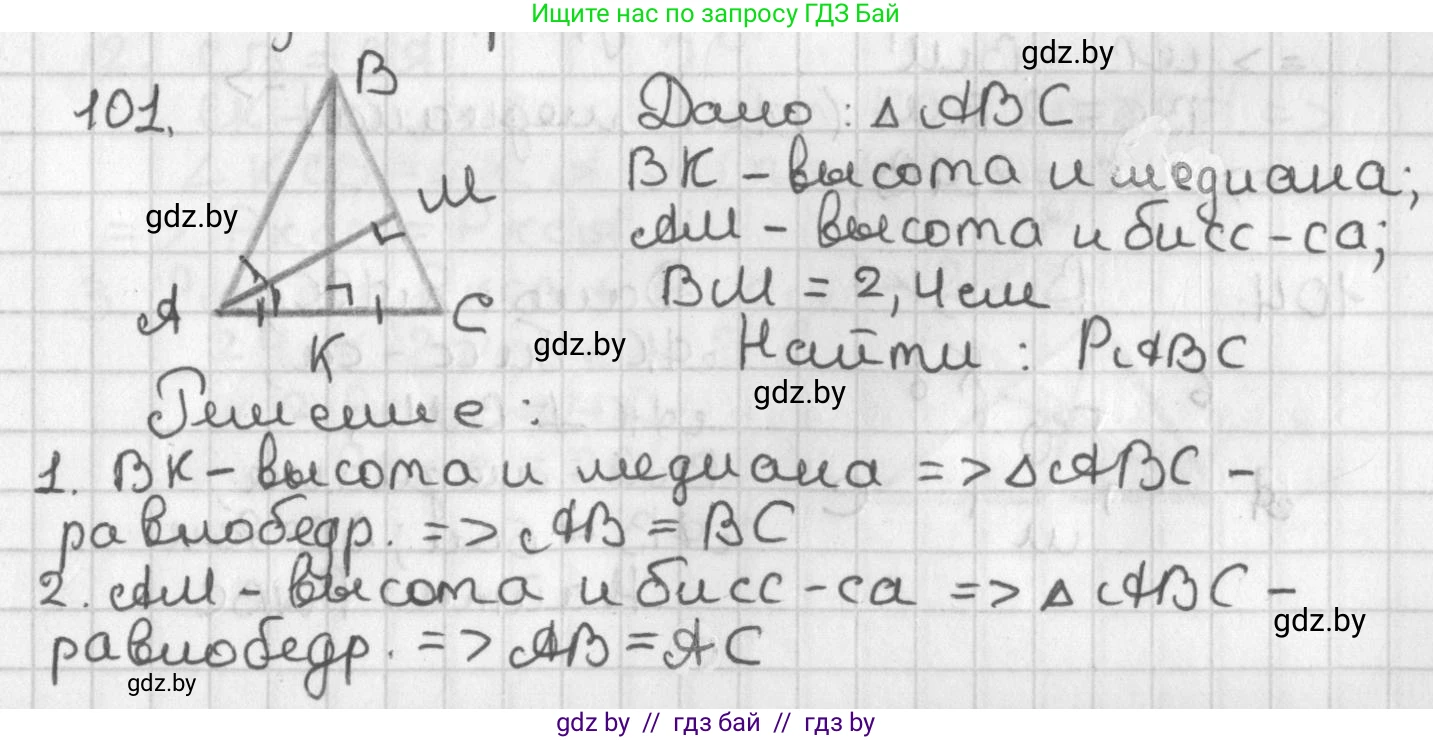 Ищите нас по запросу ГДЗ Бай
gdz.by
101.
B
Дано: △ABC
BK - высота и медиана;
M
gdz.by
AM - высота и бисс-са;
BM = 2,4см
A
C
K
gdz.by
Найти: PABC
gdz.by
Решение:
1. BK - высота и медиана => △ABC -
равнобедр. => AB = BC
2. AM - высота и бисс-са => △ABC -
gdz.by
равнобедр. => AB = AC
gdz.by
gdz by // гдз бай // гдз by